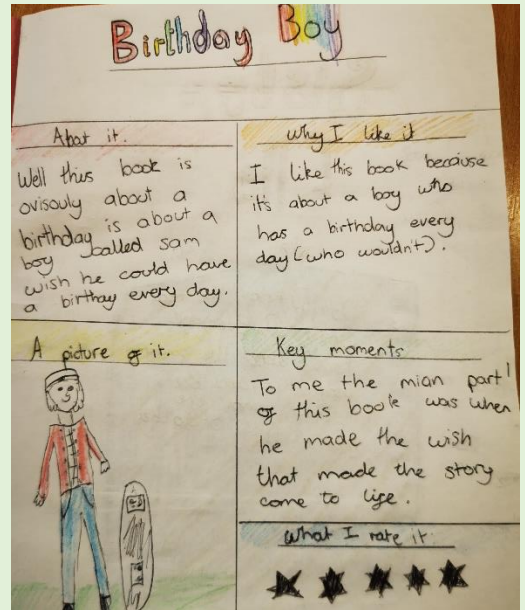 Birthday Boy
About it.
Well this book is
ovisouly about a
birthday is about a
boy called sam
wish he could have
a birthay every day.
Why I like it
I like this book because
it's about a boy who
has a birthday every
day (who wouldn't).
A picture of it.
Key moments
To me the mian part
of this book was when
he made the wish
that made the story
come to life.
What I rate it